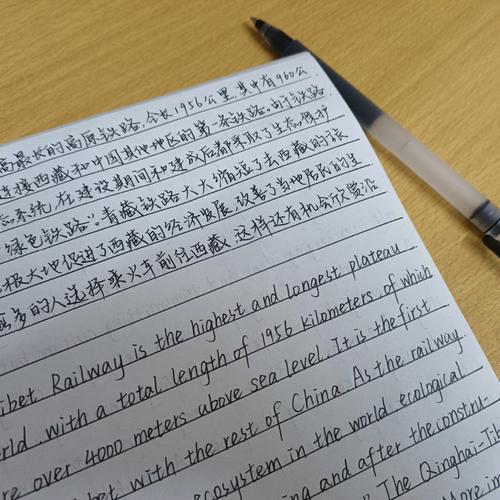 高最长的高原铁路,全长1956公里,其中有960公
连接西藏和中国其他地区的第一条铁路。由于铁路
态系统,在建设期间和建成后都采取了生态保护
"绿色铁路"。青藏铁路大大缩短了去西藏的旅
极大地促进了西藏的经济发展,改善了当地居民的生
多的人选择乘火车前往西藏,这样还有机会欣赏沿
ibet Railway is the highest and longest plateau
rld, with a total length of 1956 kilometers, of which
re over 4000 meters above sea level. It is the first
ibet with the rest of China. As the railway
ecosystem in the world, ecological
ing and after the constru-
The Qinghai-Tib